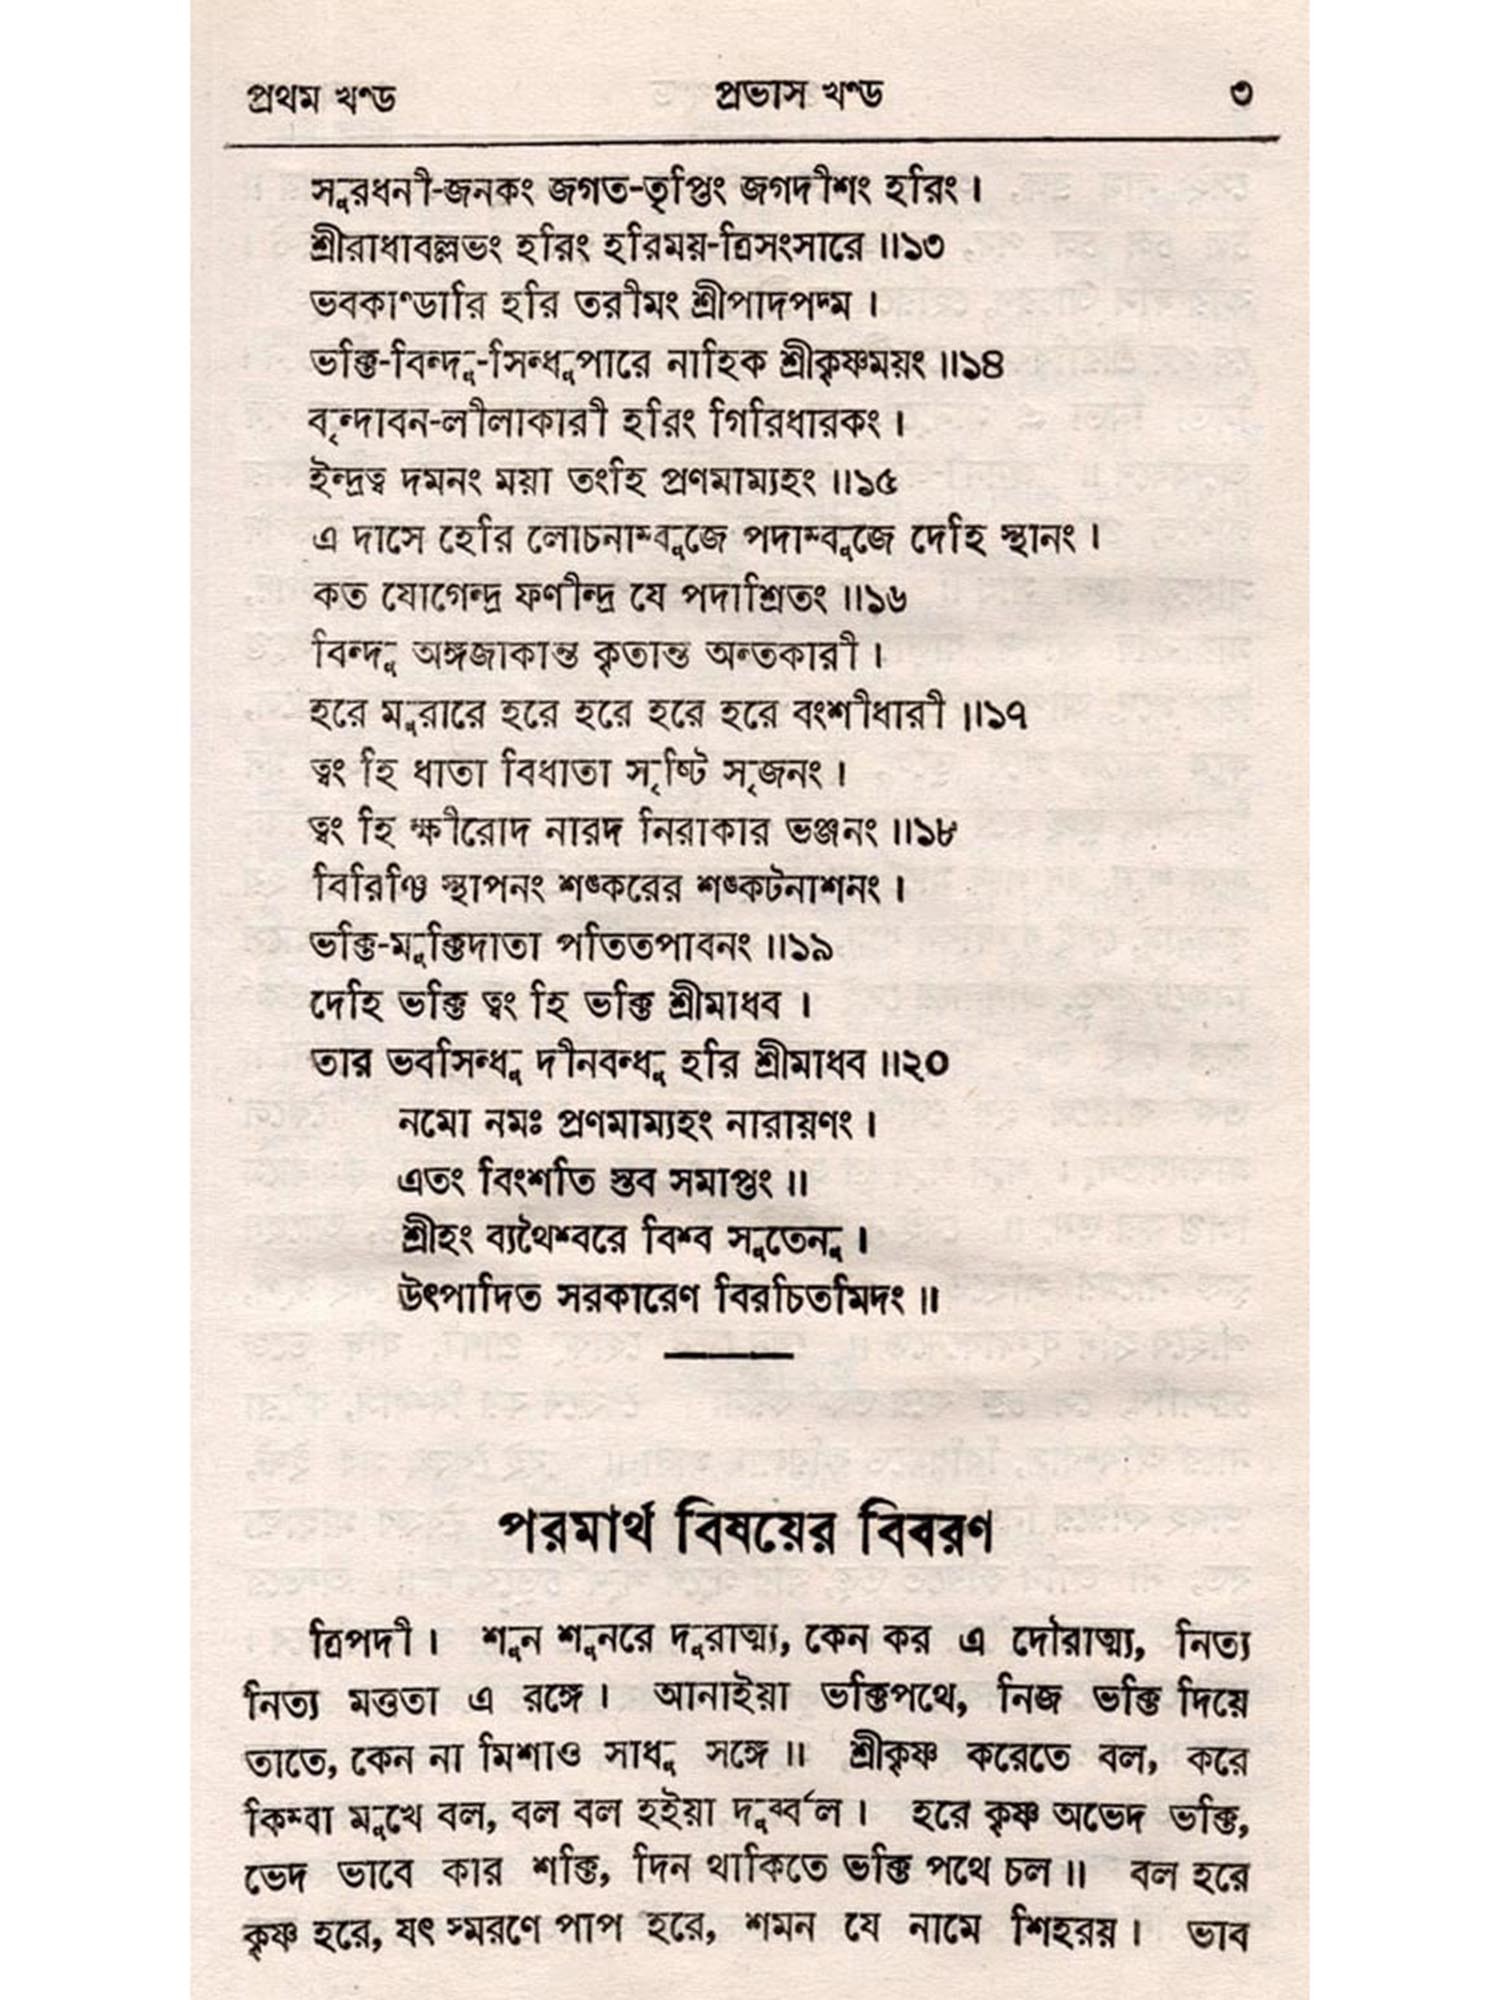 প্রথম খণ্ড প্রভাস খণ্ড ৩
সুরধনী-জনকং জগত-তৃপ্তিং জগদীশং হরিং।
শ্রীরাধাবল্লভং হরিং হরিময়-ত্রিসংসারে॥১৩
ভবকাণ্ডারি হরি তরীমং শ্রীপাদপদ্ম।
ভক্তি-বিন্দু-সিন্ধুপারে নাহিক শ্রীকৃষ্ণময়ং॥১৪
বৃন্দাবন-লীলাকারী হরিং গিরিধারকং।
ইন্দ্রত্ব দমনং ময়া তংহি প্রণমাম্যহং॥১৫
এ দাসে হেরি লোচনাম্বুজে পদাম্বুজে দেহি স্থানং।
কত যোগেন্দ্র ফণীন্দ্র যে পদাশ্রিতং॥১৬
বিন্দু অঙ্গজাকান্ত কৃতান্ত অন্তকারী।
হরে মুরারে হরে হরে হরে হরে বংশীধারী॥১৭
ত্বং হি ধাতা বিধাতা সৃষ্টি সৃজনং।
ত্বং হি ক্ষীরোদ নারদ নিরাকার ভঞ্জনং॥১৮
বিরিঞ্চি স্থাপনং শঙ্করের শঙ্কটনাশনং।
ভক্তি-মুক্তিদাতা পতিতপাবনং॥১৯
দেহি ভক্তি ত্বং হি ভক্তি শ্রীমাধব।
তার ভবসিন্ধু দীনবন্ধু হরি শ্রীমাধব॥২০
নমো নমঃ প্রণমাম্যহং নারায়ণং।
এতং বিংশতি স্তব সমাপ্তং॥
শ্রীহং ব্যথৈশ্বরে বিশ্ব সুতেনু।
উৎপাদিত সরকারেণ বিরচিতমিদং॥
পরমার্থ বিষয়ের বিবরণ
ত্রিপদী। শুন শুনরে দুরাত্ম্য, কেন কর এ দৌরাত্ম্য, নিত্য
নিত্য মত্ততা এ রঙ্গে। আনাইয়া ভক্তিপথে, নিজ ভক্তি দিয়ে
তাতে, কেন না মিশাও সাধু সঙ্গে॥ শ্রীকৃষ্ণ করেতে বল, করে
কিম্বা মুখে বল, বল বল হইয়া দুর্ব্বল। হরে কৃষ্ণ অভেদ ভক্তি,
ভেদ ভাবে কার শক্তি, দিন থাকিতে ভক্তি পথে চল॥ বল হরে
কৃষ্ণ হরে, যৎ স্মরণে পাপ হরে, শমন যে নামে শিহরয়। ভাব